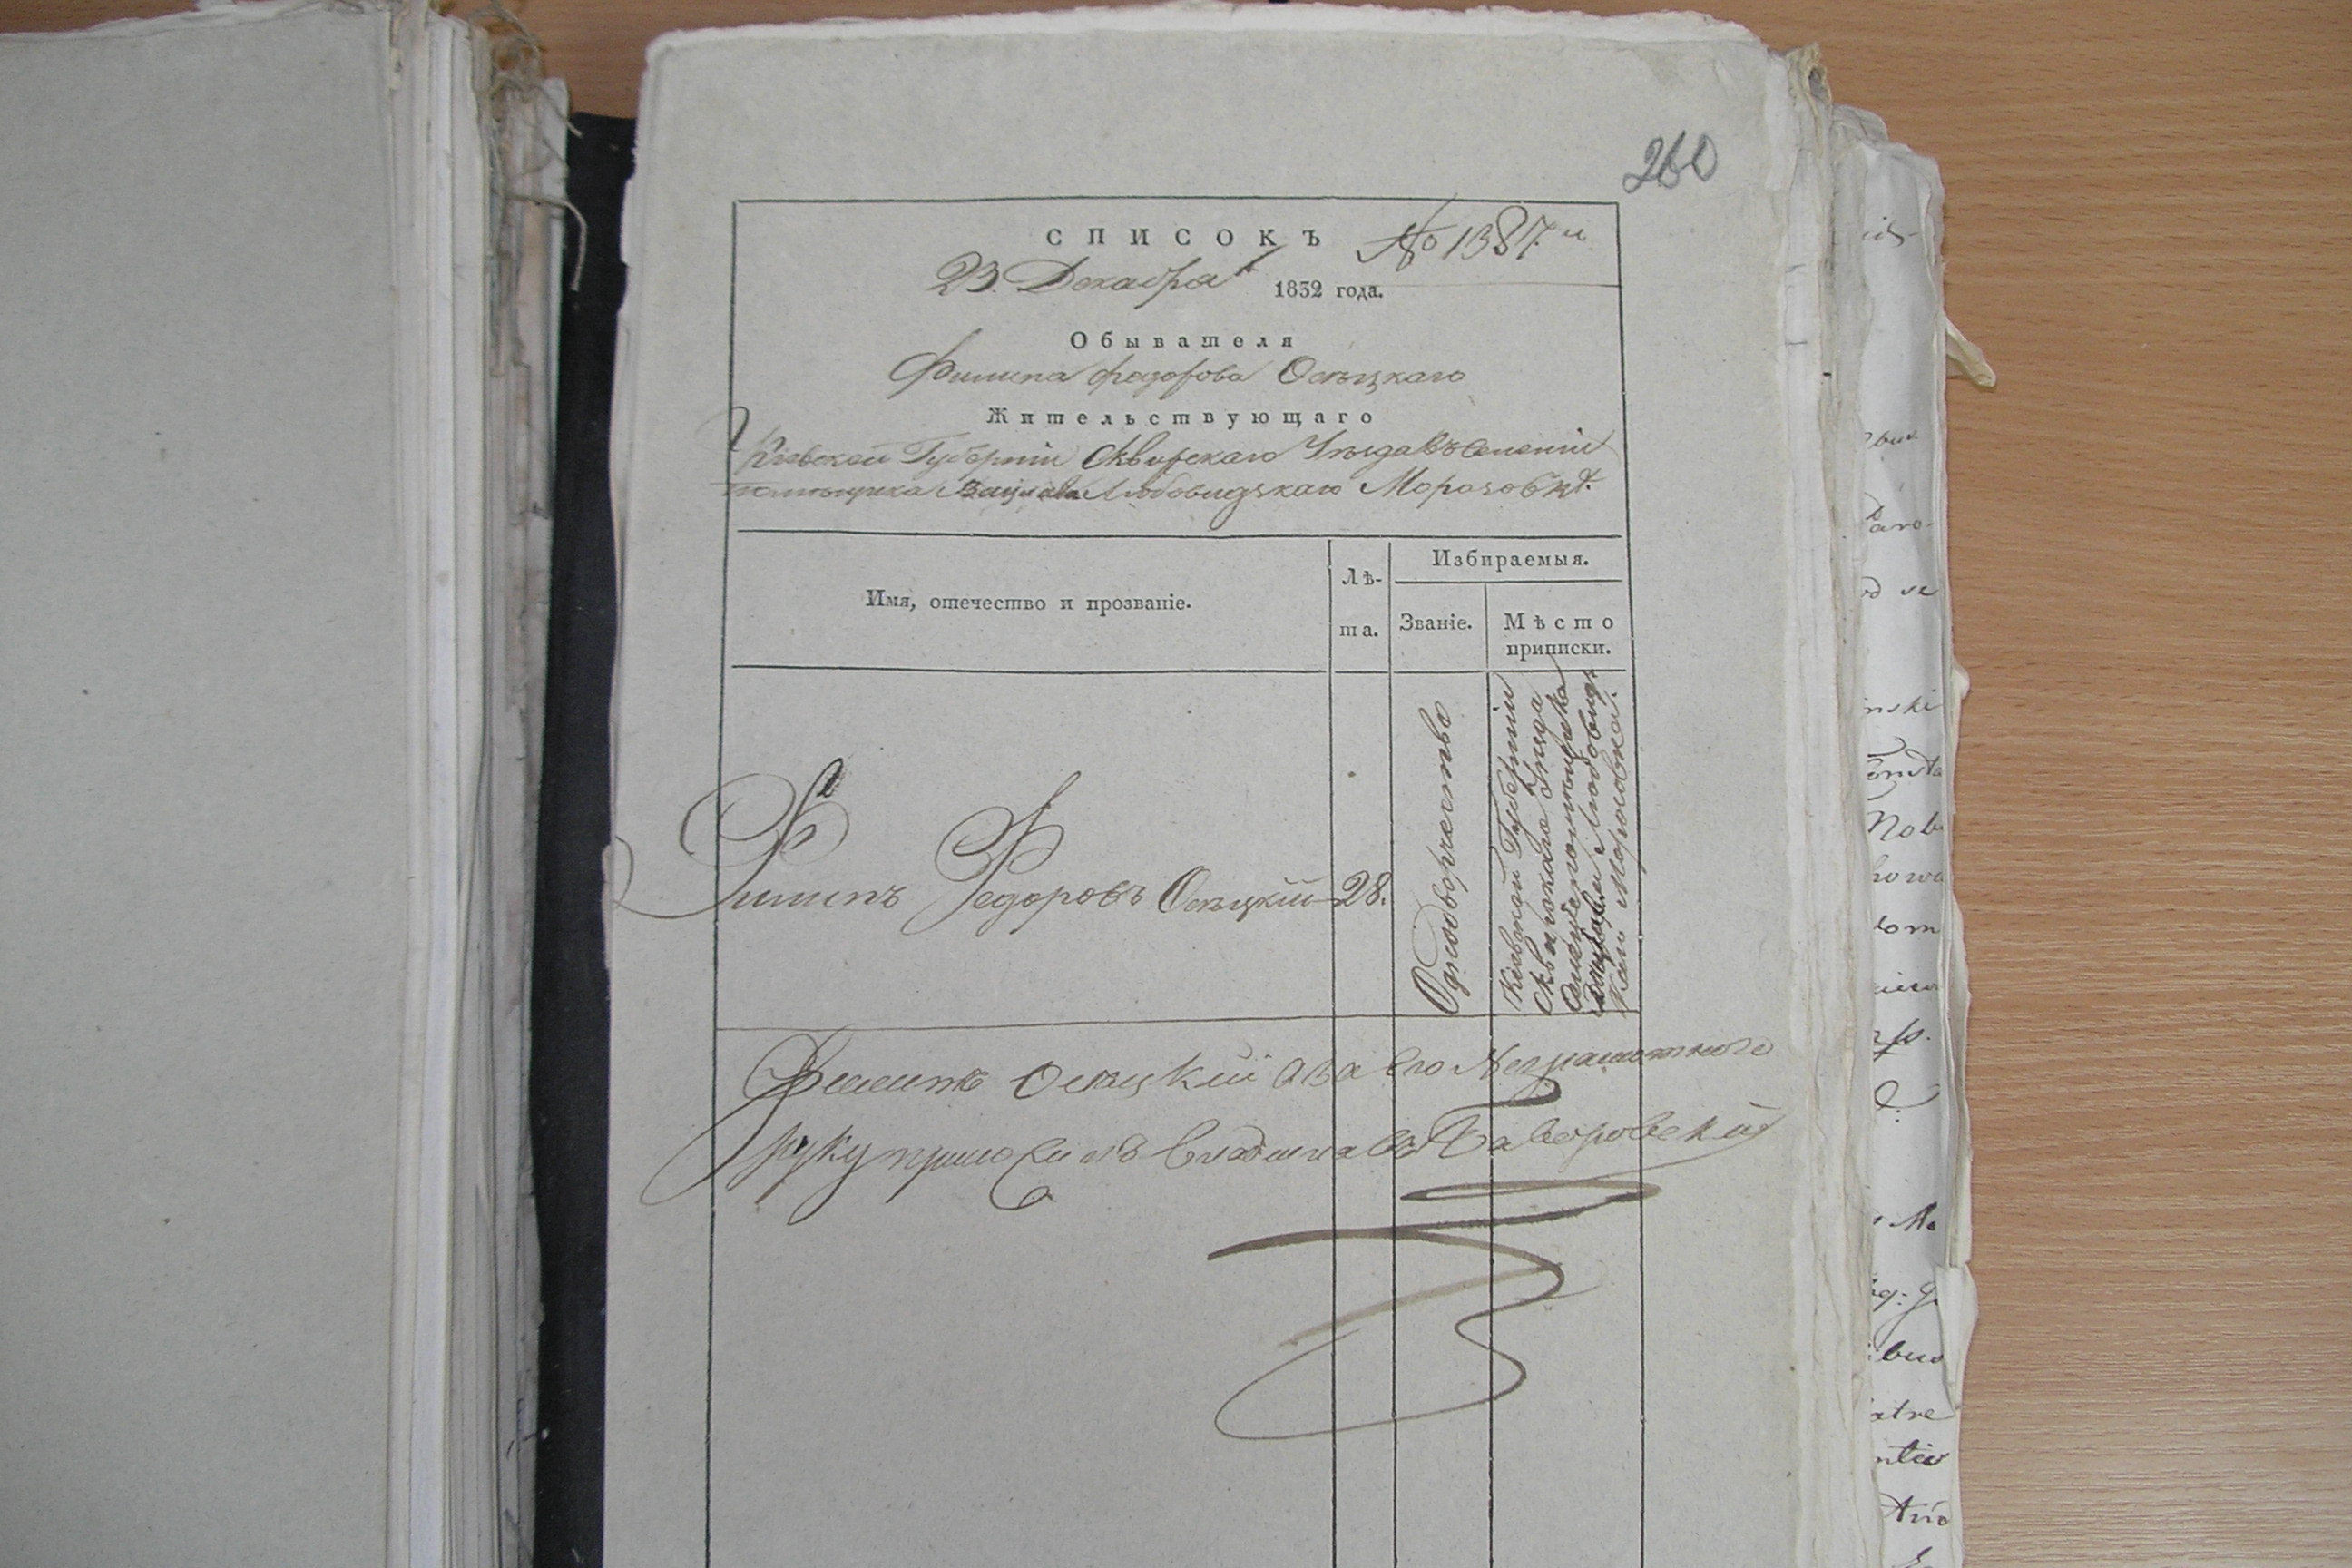 260
СПИСОКЪ № 1387.й
23. Декабря 1832 года.
Обывателя
Филипа Федорова Осѣцкаго
Жительствующаго
Кіевской Губерніи Сквирскаго Уѣзда въ селеніи
помѣщика Вацлава Любовидзкаго Морозовкѣ.
Имя, отечество и прозваніе.
Лѣ-
та.
Избираемыя.
Званіе.
Мѣсто
приписки.
Филипъ Федоровъ Осѣцкій
28.
Однодворчество
Кіевской Губерніи
Сквирскаго Уѣзда
помѣщика
Любовидз
каго Морозовка.
Филипъ Осѣцкій а за его Неграмотного
руку приложилъ Владиславъ Баворовский